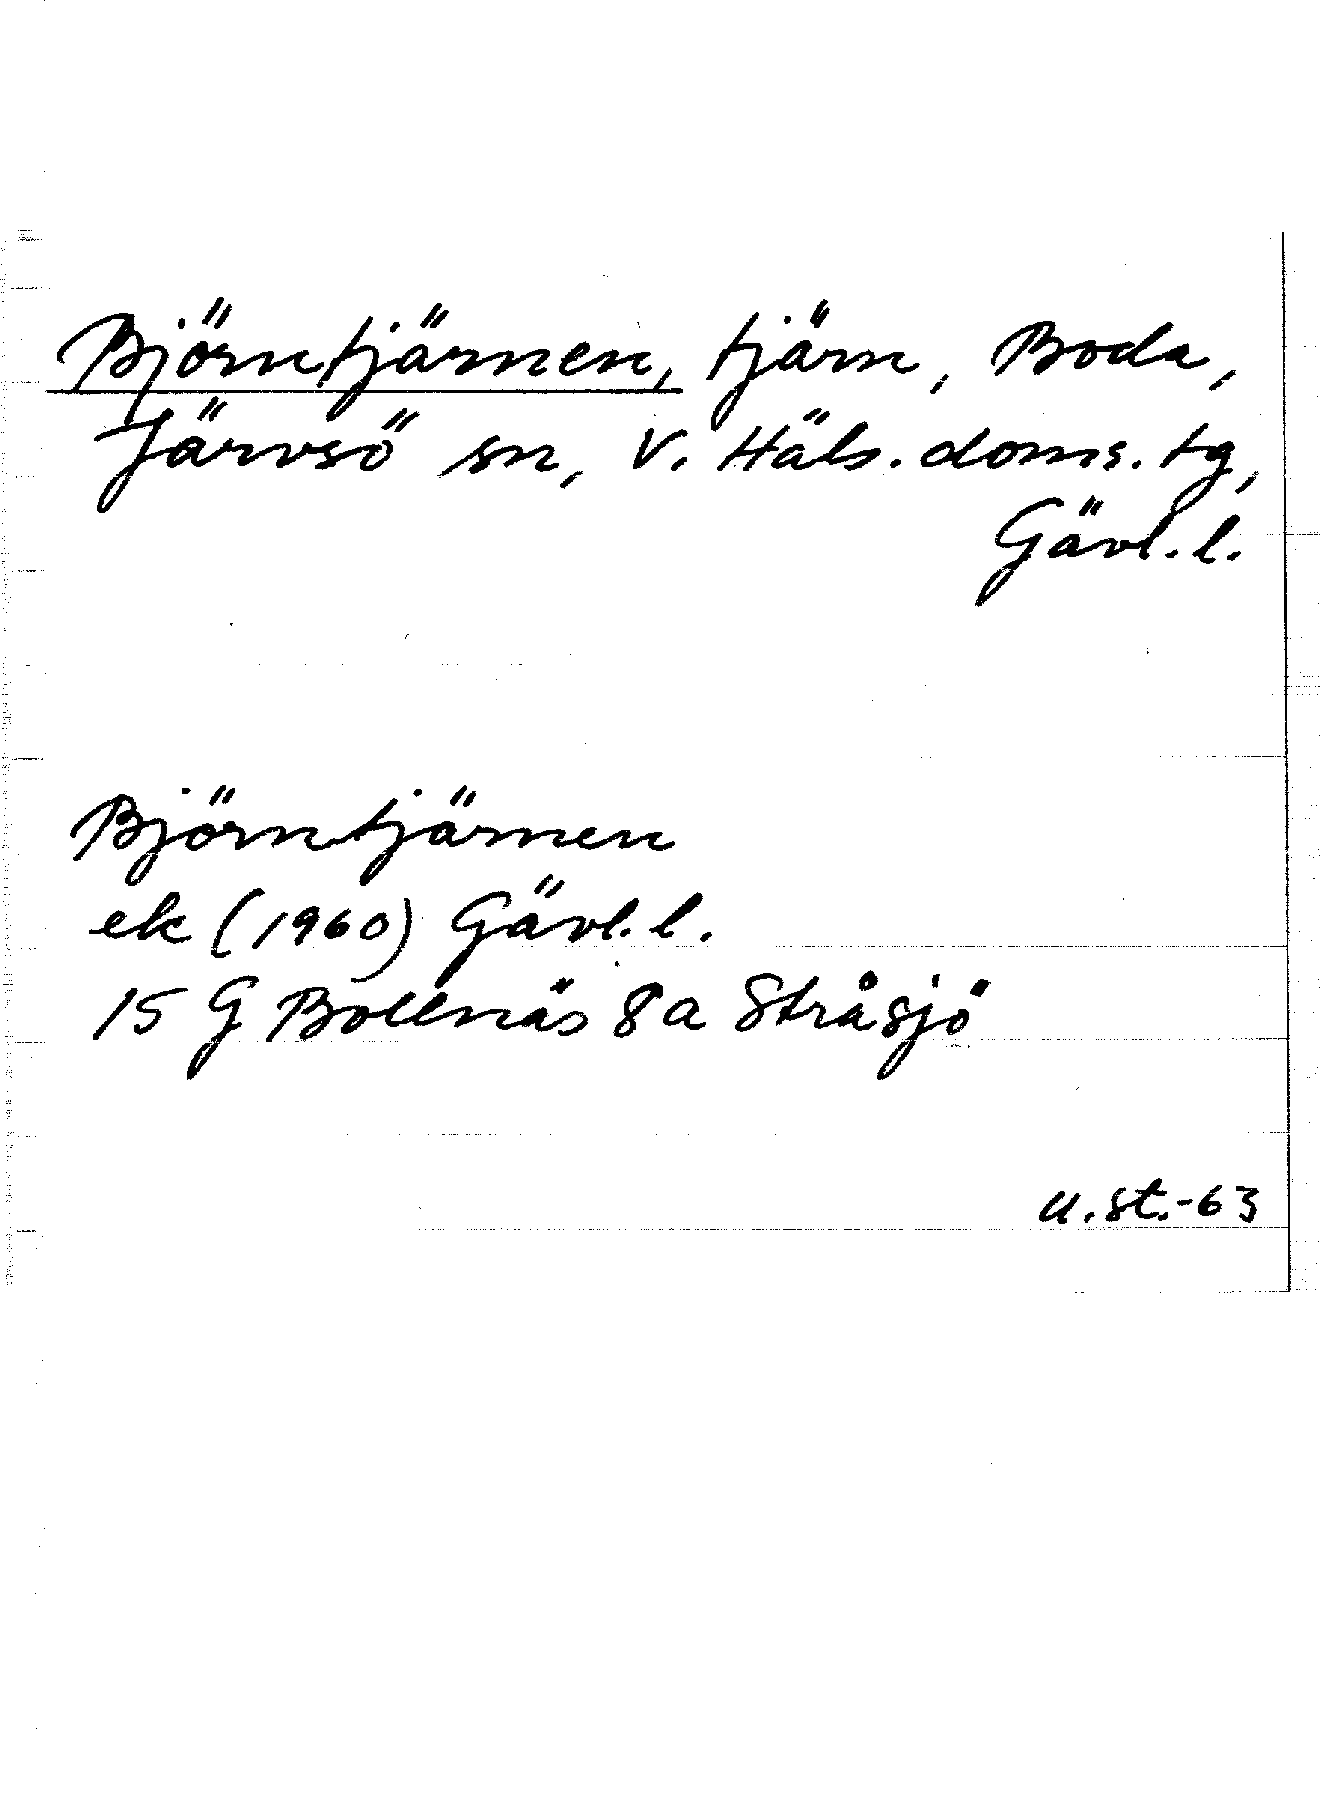 Björntjärnen, tjärn, Boda,
Järvsö sn, V. Häls. doms. tg,
Gävl. l.
Björntjärnen
ek (1960) Gävl. l.
15 G Bollnäs 8 a Stråsjö
U. st. -63